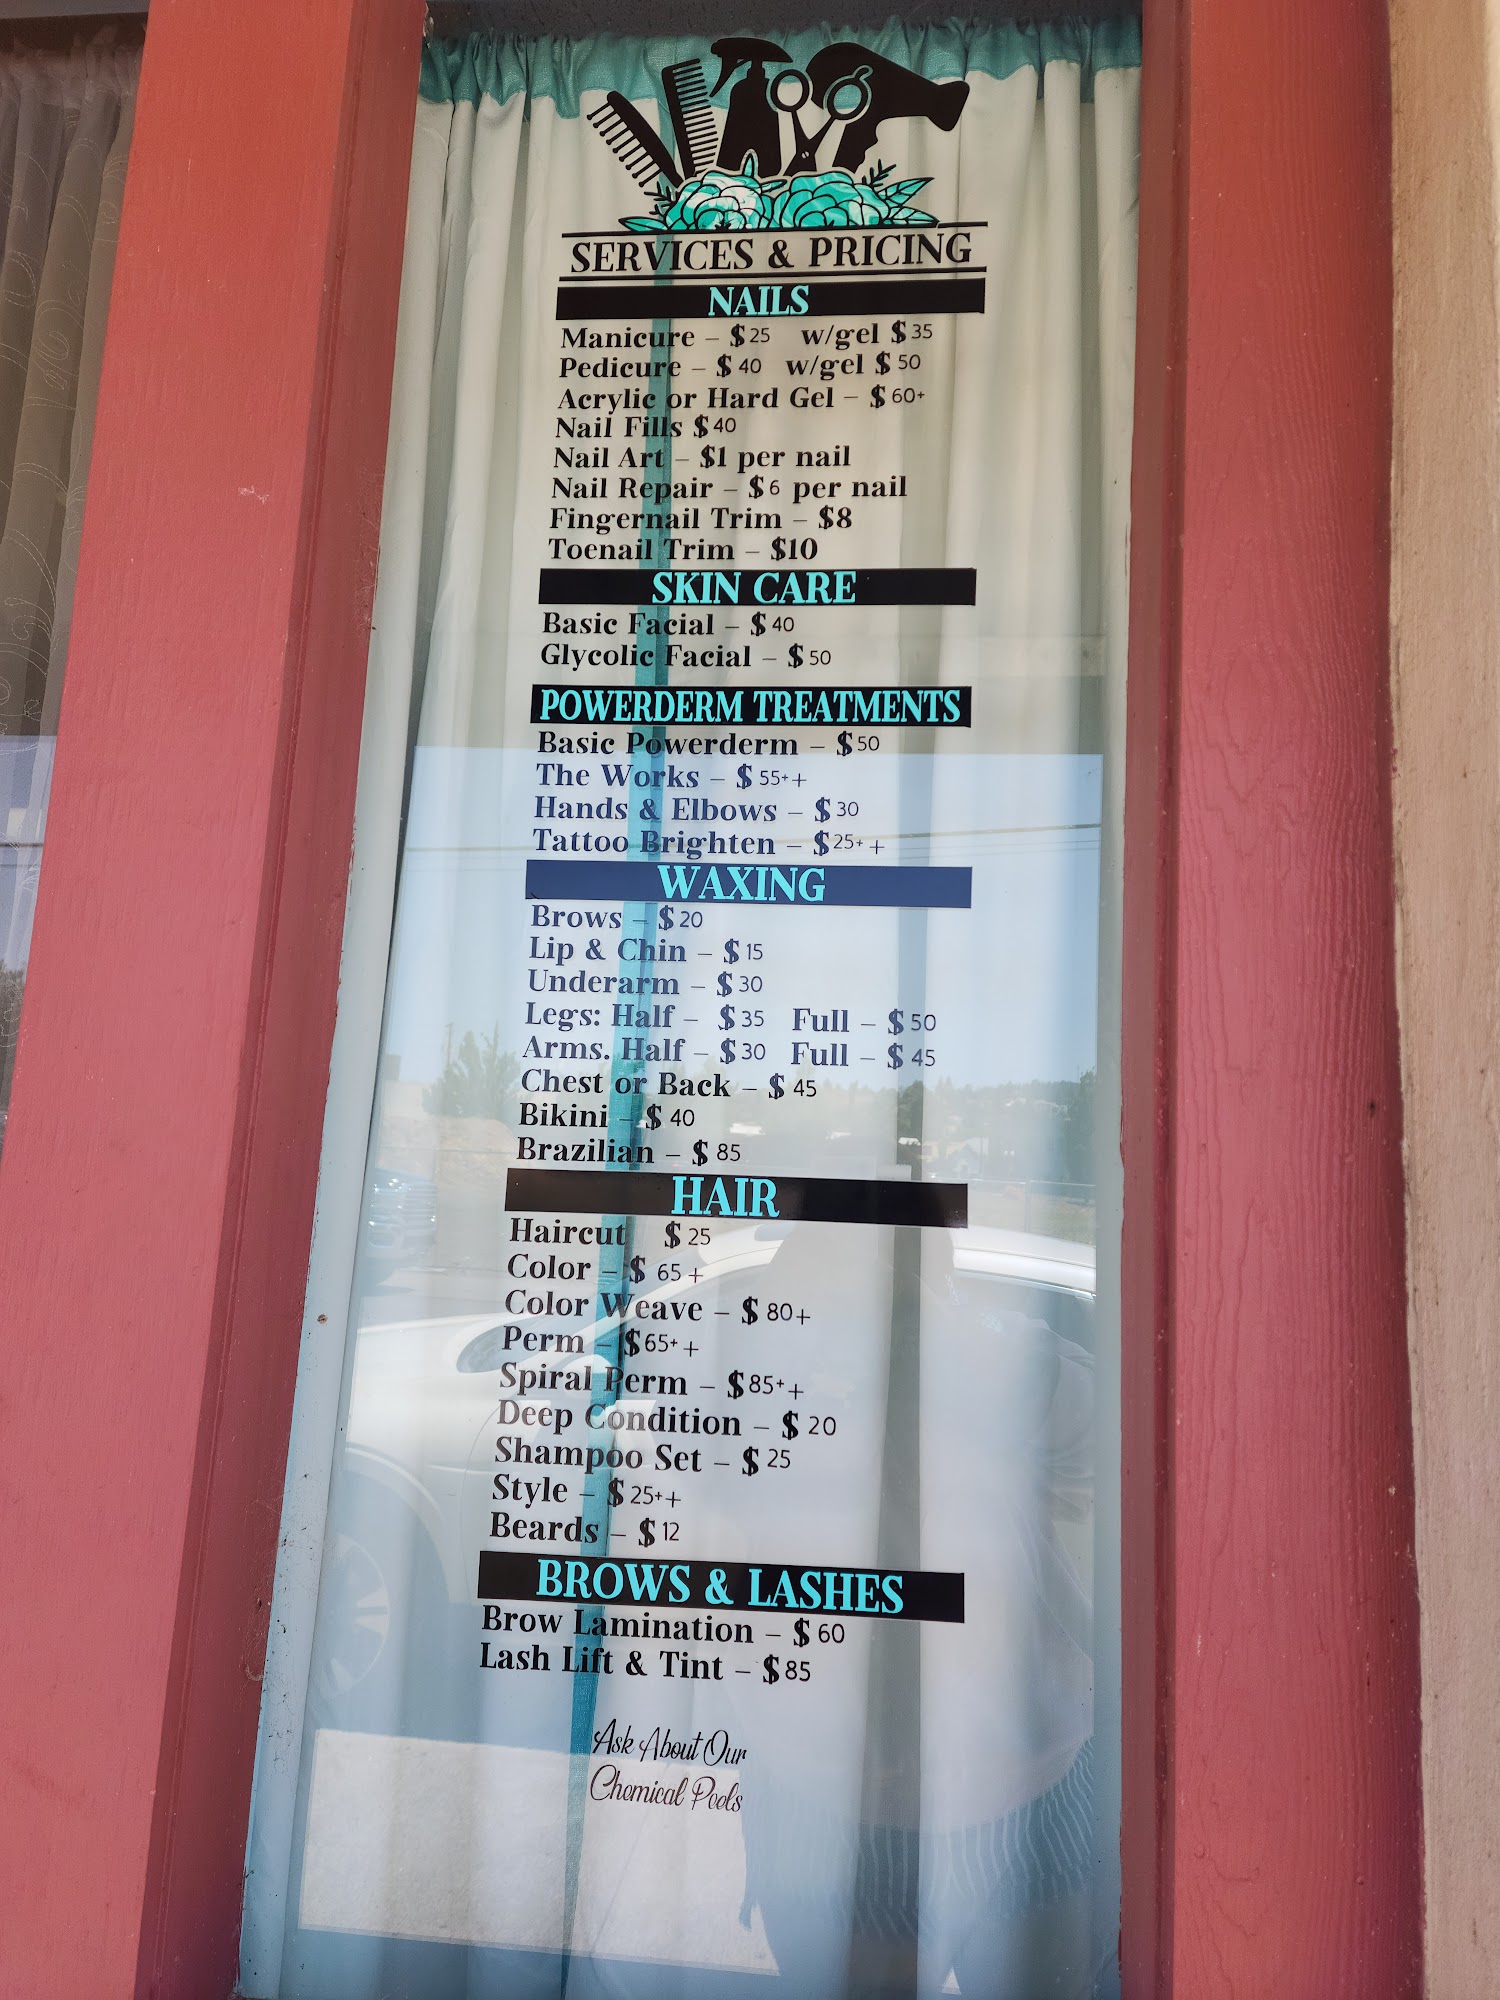 SERVICES & PRICING
NAILS
Manicure – $25 w/gel $35
Pedicure – $40 w/gel $50
Acrylic or Hard Gel – $60+
Nail Fills $40
Nail Art – $1 per nail
Nail Repair – $6 per nail
Fingernail Trim – $8
Toenail Trim – $10
SKIN CARE
Basic Facial – $40
Glycolic Facial – $50
POWERDERM TREATMENTS
Basic Powerderm – $50
The Works – $55++
Hands & Elbows – $30
Tattoo Brighten – $25++
WAXING
Brows – $20
Lip & Chin – $15
Underarm – $30
Legs: Half – $35 Full – $50
Arms. Half – $30 Full – $45
Chest or Back – $45
Bikini – $40
Brazilian – $85
HAIR
Haircut $25
Color – $65+
Color Weave – $80+
Perm – $65++
Spiral Perm – $85++
Deep Condition – $20
Shampoo Set – $25
Style – $25++
Beards – $12
BROWS & LASHES
Brow Lamination – $60
Lash Lift & Tint – $85
Ask About Our
Chemical Peels